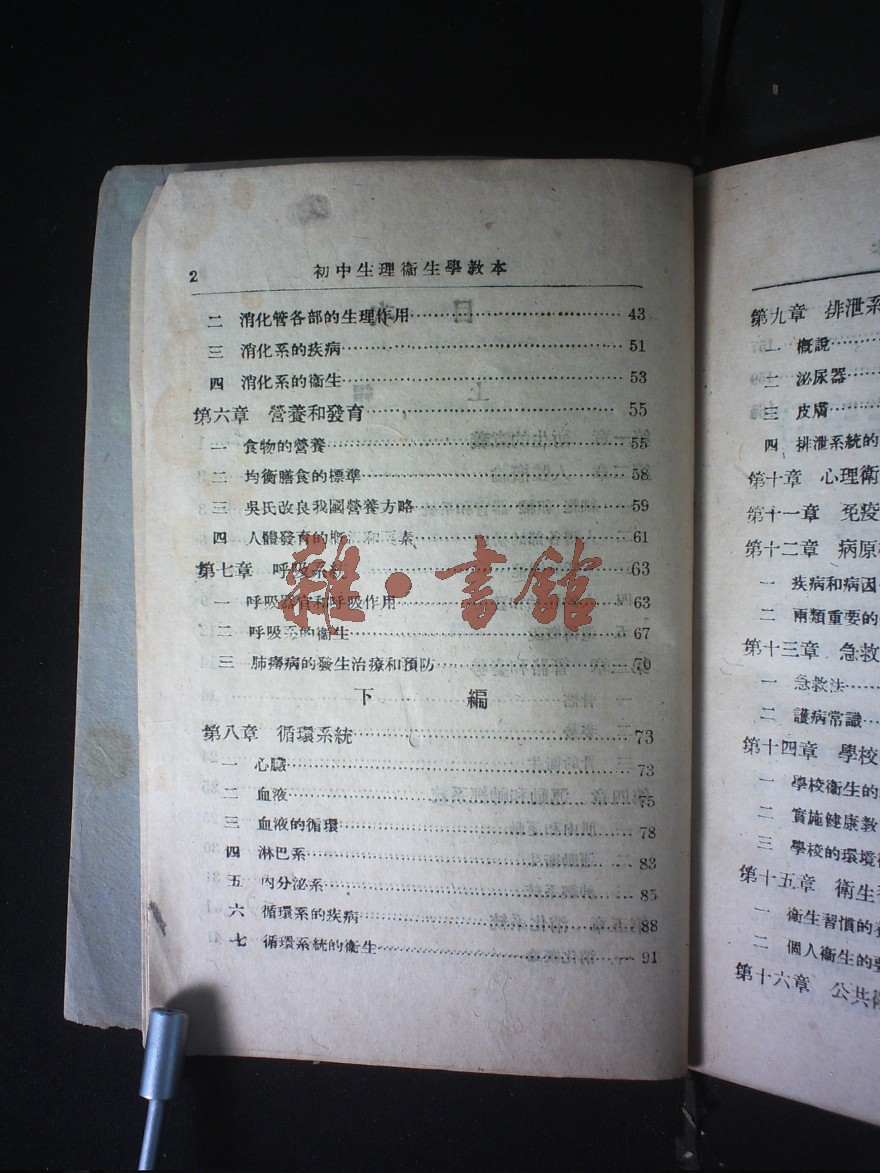 2 初中生理衞生學教本
二 消化管各部的生理作用 43
三 消化系的疾病 51
四 消化系的衞生 53
第六章 營養和發育 55
一 食物的營養 55
二 均衡膳食的標準 58
三 吳氏改良我國營養方略 59
四 人體發育的 和 素 61
第七章 呼吸系 63
一 呼吸器官和呼吸作用 63
二 呼吸系的衞生 67
三 肺癆病的發生治療和預防 70
下 編
第八章 循環系統 73
一 心臟 73
二 血液 75
三 血液的循環 78
四 淋巴系 83
五 內分泌系 85
六 循環系的疾病 88
七 循環系統的衞生 91
雜·書館
第九章 排泄系
一 概說
二 泌尿器
三 皮膚
四 排泄系統的
第十章 心理衞
第十一章 免疫
第十二章 病原
一 疾病和病因
二 兩類重要的
第十三章 急救
一 急救法
二 護病常識
第十四章 學校
一 學校衞生的
二 實施健康教
三 學校的環境
第十五章 衞生
一 衞生習慣的
二 個人衞生的
第十六章 公共